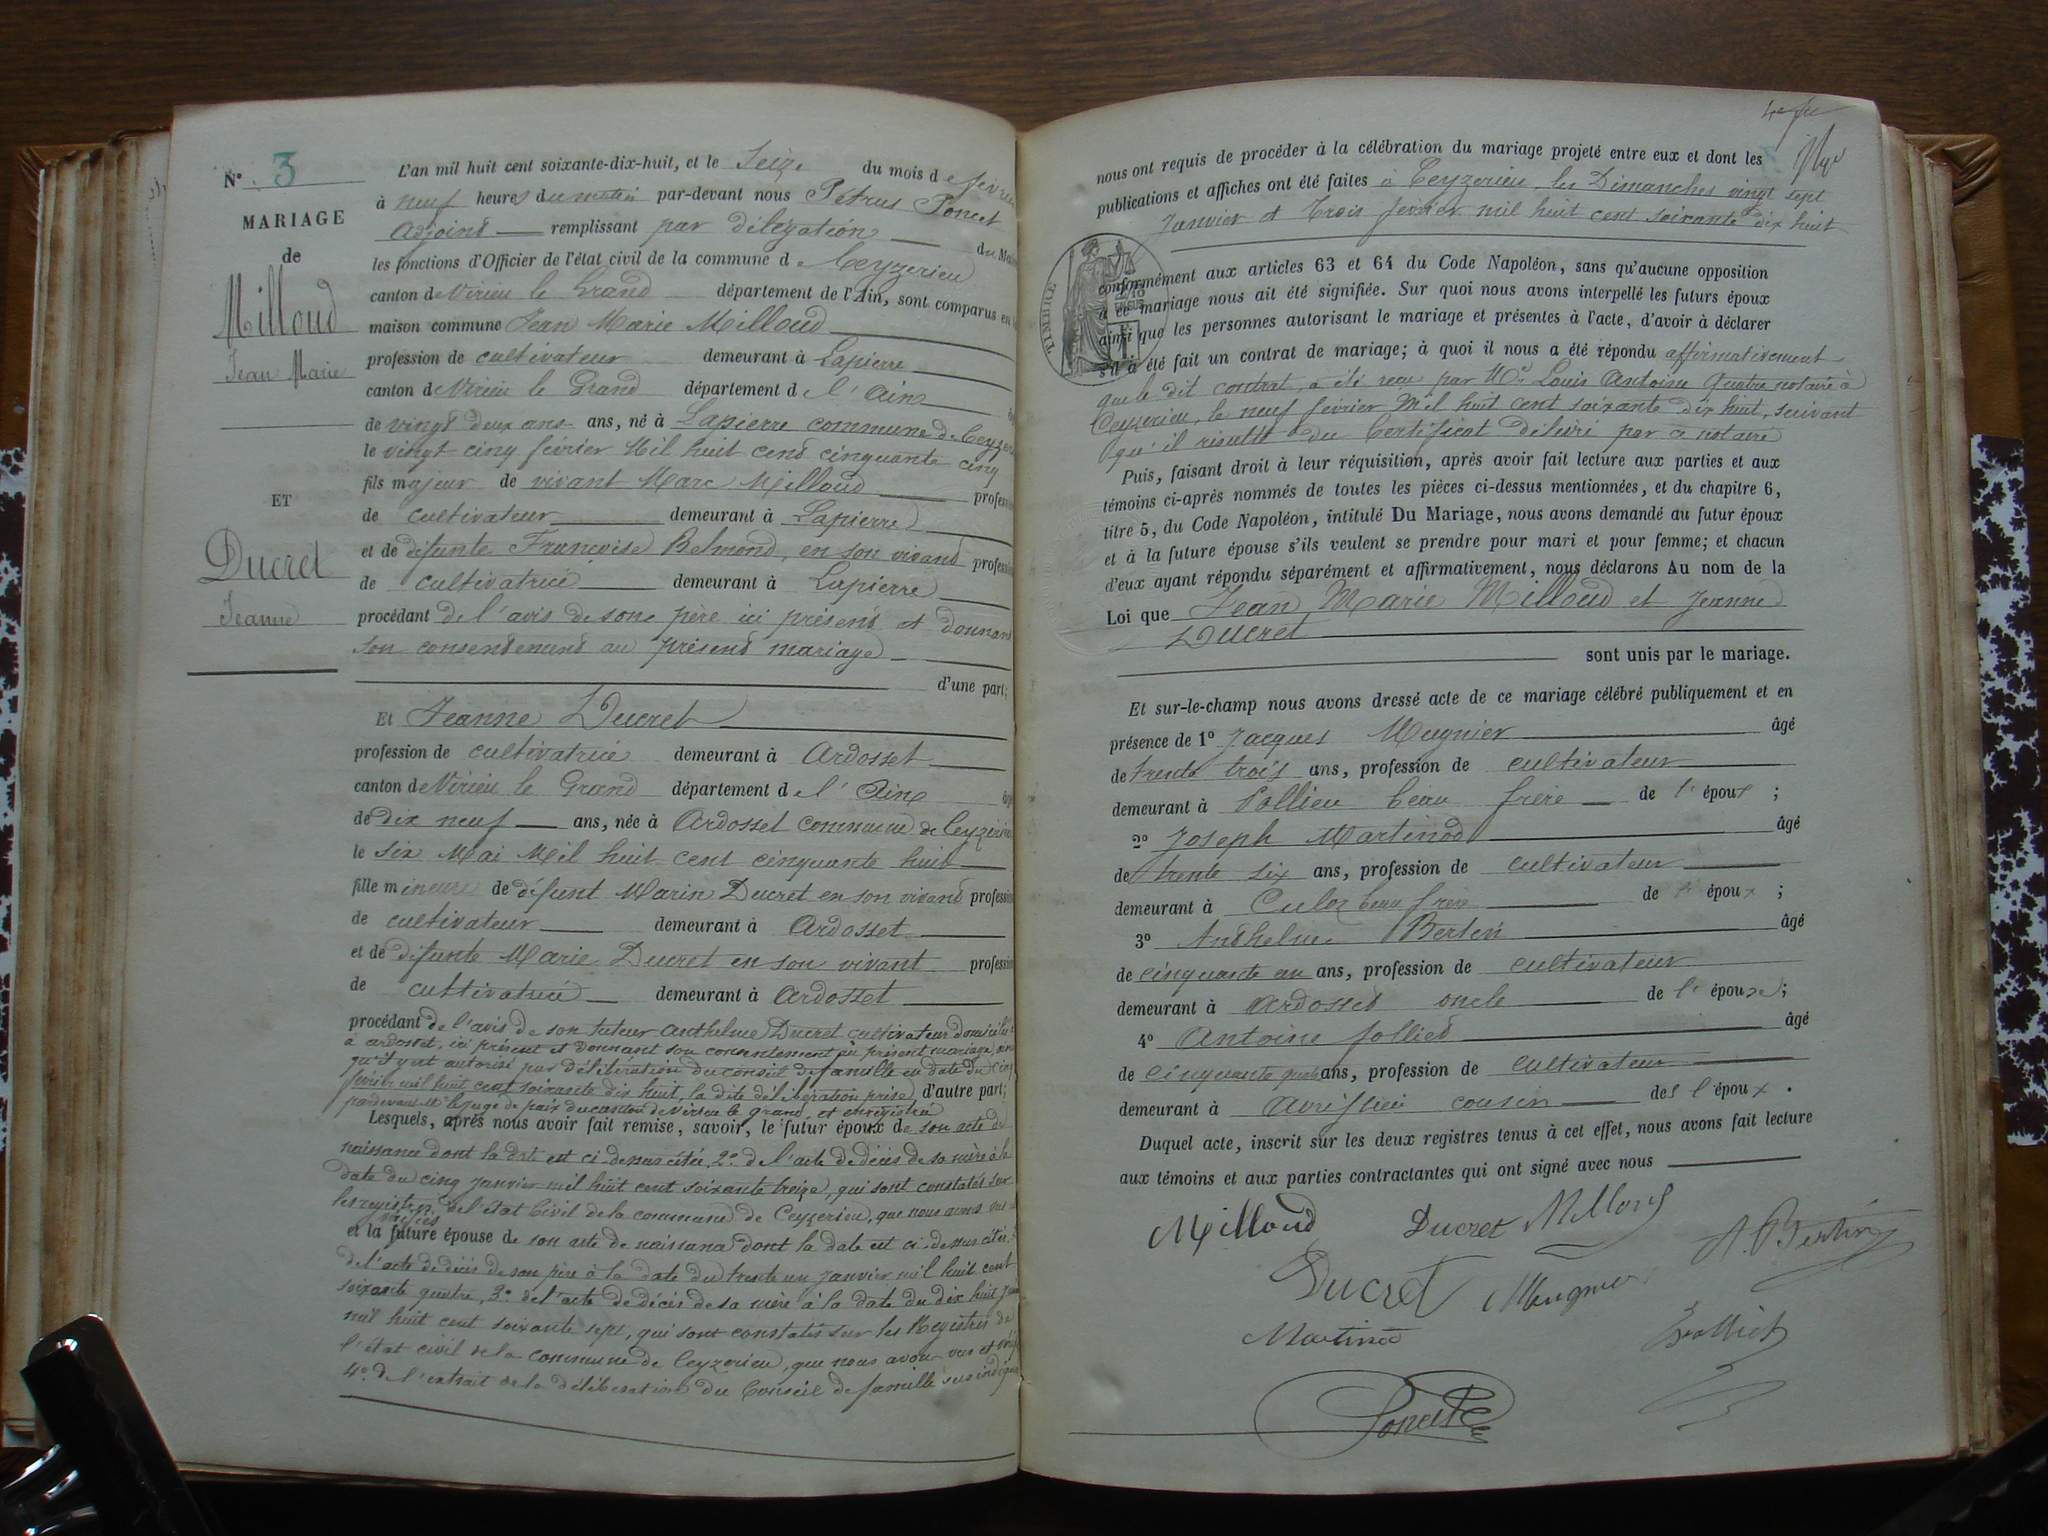 N° 3
MARIAGE
de
Milloud
Jean Marie
ET
Ducret
Jeanne
L'an mil huit cent soixante-dix-huit, et le Seize du mois de
à neuf heures du matin par-devant nous Pétrus Poncet
adjoint remplissant par délégation du
les fonctions d'Officier de l'état civil de la commune de Ceyzerieu
canton de Virieu le Grand département de l'Ain, sont comparus en
maison commune Jean Marie Milloud
profession de cultivateur demeurant à Lapierre
canton de Virieu le Grand département de l'Ain
de vingt deux ans ans, né à Lapierre commune de
le vingt cinq février Mil huit cent cinquante cinq
fils majeur de vivant Marc Milloud
de cultivateur demeurant à Lapierre
et de défunte Françoise Belmond, en son vivant
de cultivatrice demeurant à Lapierre
procédant de l'avis de son père ici présent et donnant
son consentement au présent mariage
d'une part;
Et Jeanne Ducret
profession de cultivatrice demeurant à Ardosset
canton de Virieu le Grand département de l'Ain
de dix neuf ans, née à Ardosset commune de Ceyzerieu
le six Mai Mil huit cent cinquante huit
fille mineure de défunt Marin Ducret en son vivant
de cultivateur demeurant à Ardosset
et de défunte Marie Ducret en son vivant
de cultivatrice demeurant à Ardosset
procédant de l'avis de son tuteur Anthelme Ducret cultivateur domicilié
à ardosset, ici présent et donnant son consentement au présent mariage,
qu'il y est autorisé par délibération du conseil de famille en date du cinq
février mil huit cent soixante dix huit, la dite délibération prise d'autre part;
pardevant Mr le juge de paix du canton de Virieu le grand, et enregistrée
Lesquels, après nous avoir fait remise, savoir, le futur époux de son acte de
naissance dont la date est ci-dessus citée, 2° de l'acte de décès de sa mère à la
date du cinq janvier mil huit cent soixante treize, qui sont constatés sur
les registres de l'état Civil de la commune de Ceyzerieu, que nous avons vus
vérifiés
et la future épouse de son acte de naissance dont la date est ci-dessus citée,
de l'acte de décès de son père à la date du trente un janvier mil huit cent
soixante quatre, 3° de l'acte de décès de sa mère à la date du dix huit
mil huit cent soixante sept, qui sont constatés sur les Registres de
l'état civil de la commune de Ceyzerieu, que nous avons vus et
4° de l'extrait de la délibération du Conseil de famille sus indiqué
nous ont requis de procéder à la célébration du mariage projeté entre eux et dont les
publications et affiches ont été faites à Ceyzerieu, les Dimanches vingt sept
Janvier et Trois février mil huit cent soixante dix huit
TIMBRE
conformément aux articles 63 et 64 du Code Napoléon, sans qu'aucune opposition
à ce mariage nous ait été signifiée. Sur quoi nous avons interpellé les futurs époux
ainsi que les personnes autorisant le mariage et présentes à l'acte, d'avoir à déclarer
s'il a été fait un contrat de mariage; à quoi il nous a été répondu affirmativement
que le dit contrat, a été reçu par Me Louis Antoine Quatre notaire à
Ceyzerieu, le neuf février Mil huit cent soixante dix huit, suivant
qu'il résulte du Certificat délivré par ce notaire
Puis, faisant droit à leur réquisition, après avoir fait lecture aux parties et aux
témoins ci-après nommés de toutes les pièces ci-dessus mentionnées, et du chapitre 6,
titre 5, du Code Napoléon, intitulé Du Mariage, nous avons demandé au futur époux
et à la future épouse s'ils veulent se prendre pour mari et pour femme; et chacun
d'eux ayant répondu séparément et affirmativement, nous déclarons Au nom de la
Loi que Jean Marie Milloud et Jeanne
Ducret
sont unis par le mariage.
Et sur-le-champ nous avons dressé acte de ce mariage célébré publiquement et en
présence de 1° Jacques Mugnier âgé
de trente trois ans, profession de cultivateur
demeurant à Pollieu beau frère de l'époux ;
2° Joseph Martinod âgé
de trente six ans, profession de cultivateur
demeurant à Culoz beau frère de l'époux ;
3° Anthelme Bertin âgé
de cinquante un ans, profession de cultivateur
demeurant à Ardosset oncle de l'épouse;
4° Antoine Jolliet âgé
de cinquante quatre ans, profession de cultivateur
demeurant à Avrissieu cousin de l'époux .
Duquel acte, inscrit sur les deux registres tenus à cet effet, nous avons fait lecture
aux témoins et aux parties contractantes qui ont signé avec nous
Milloud Ducret Milloud A. Bertin
Ducret Mugnier
Martinod
Poncet